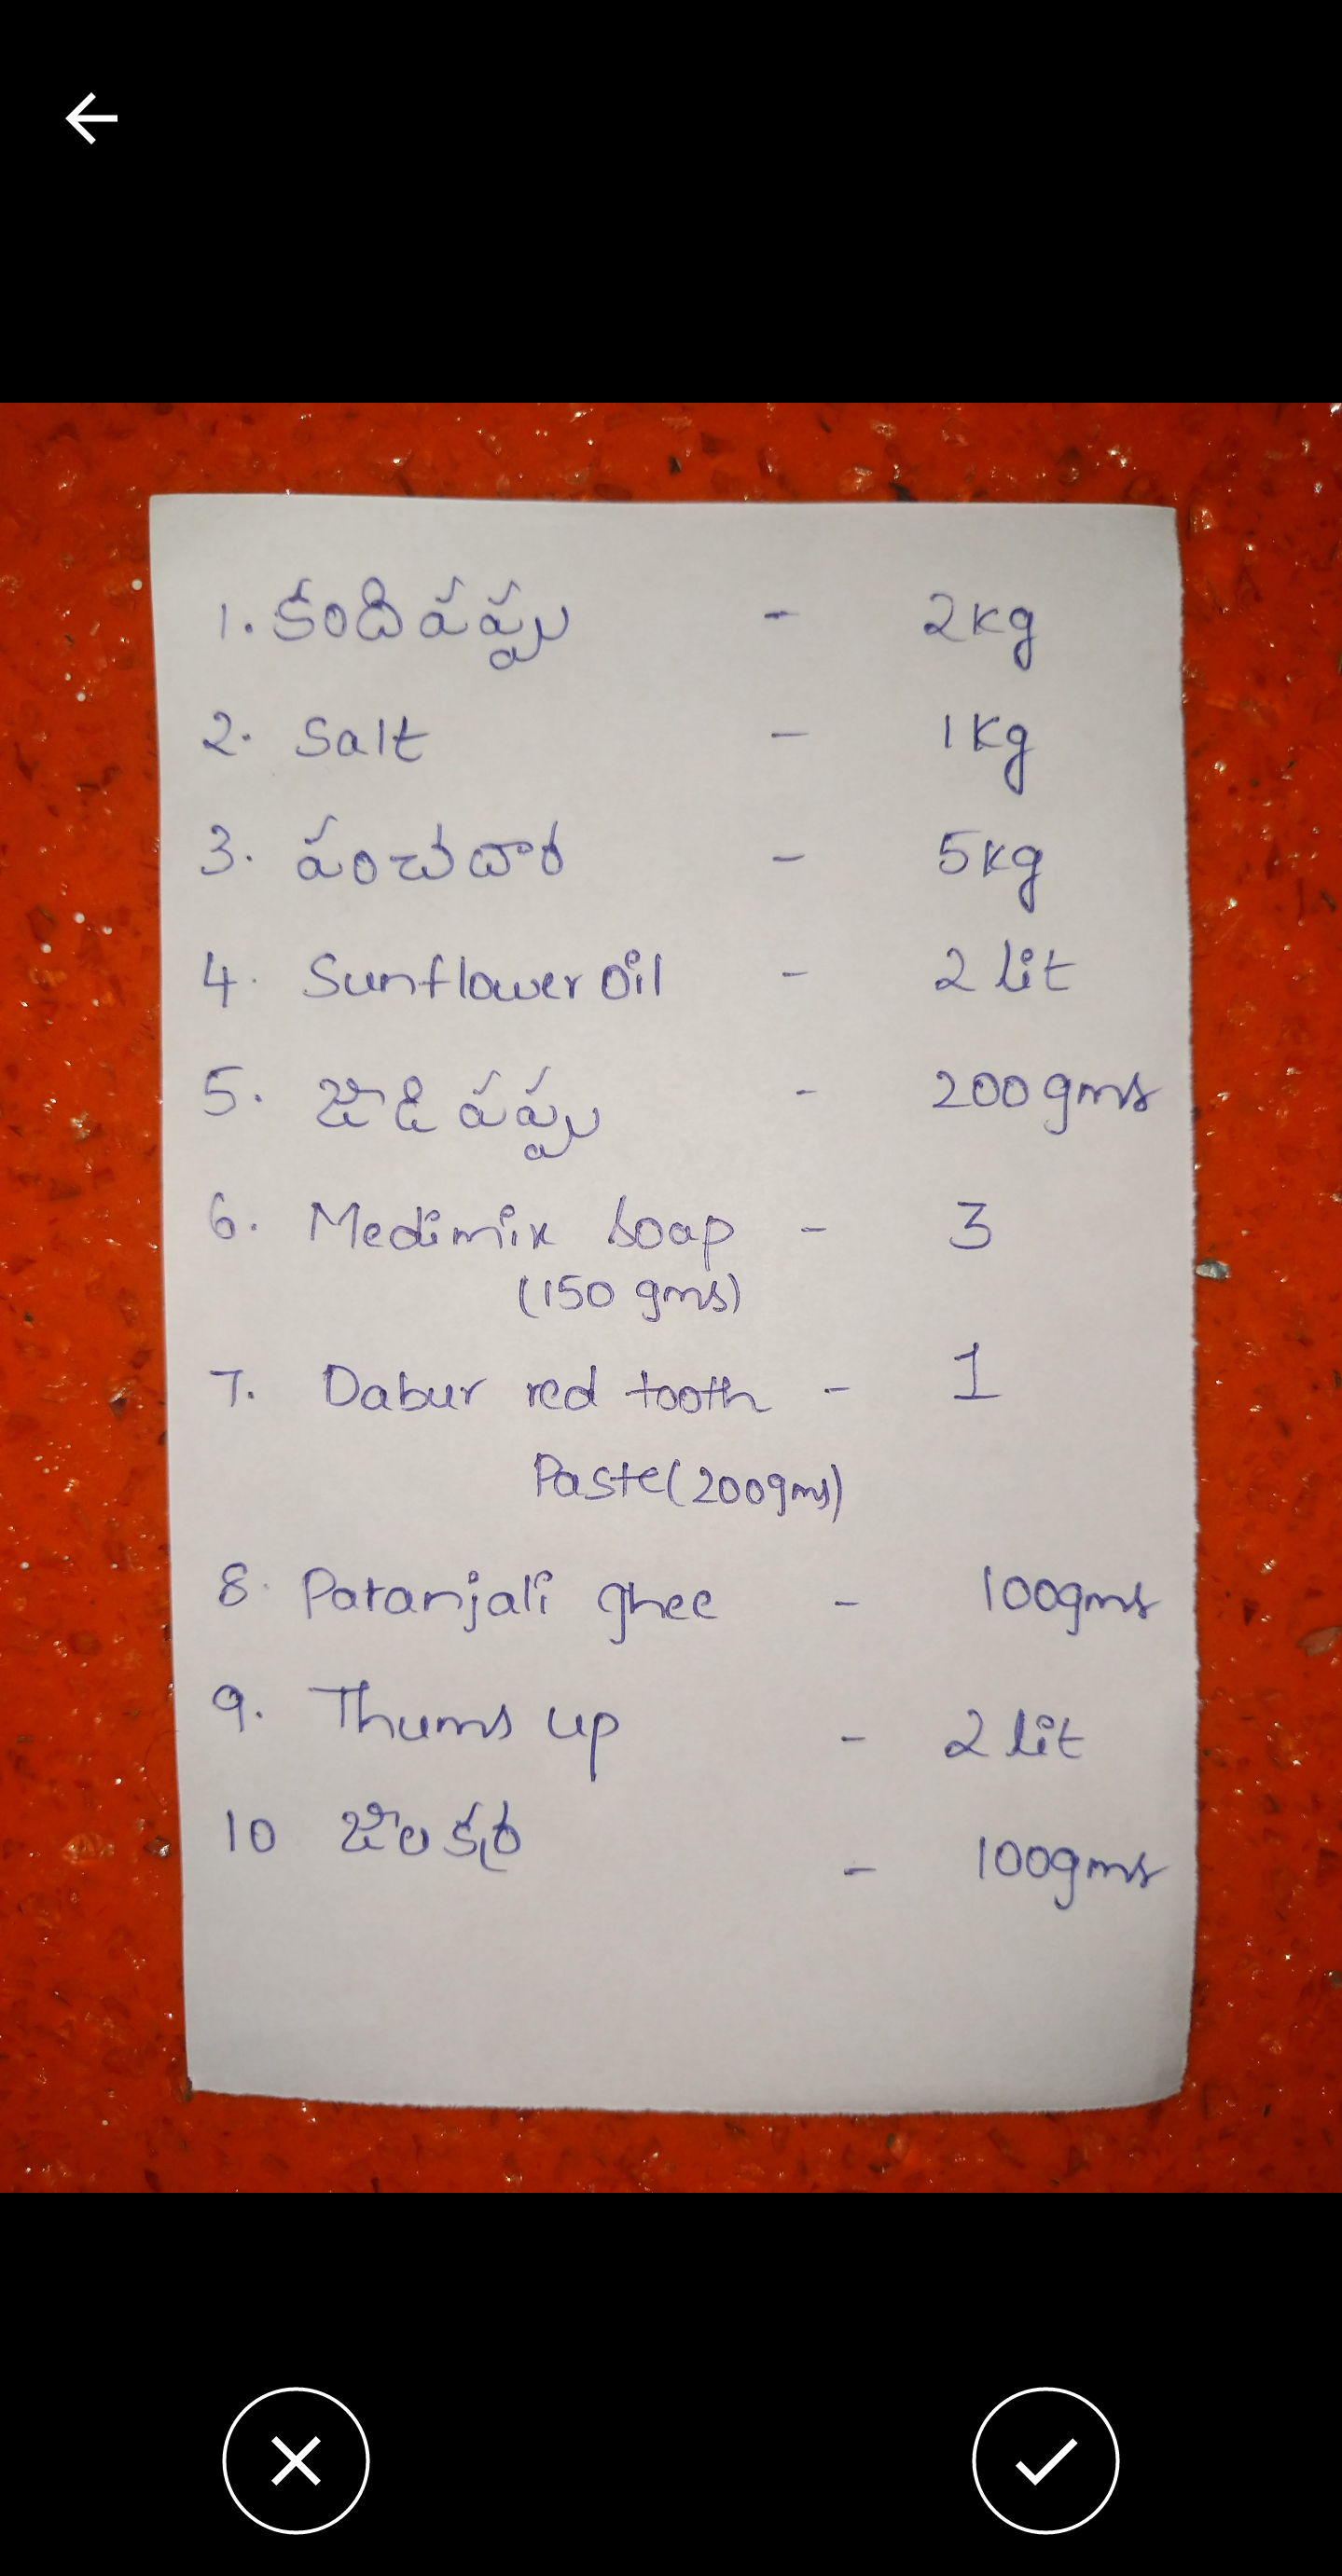 1. కందిపప్పు - 2kg
2. Salt - 1kg
3. పంచదార - 5kg
4. Sunflower oil - 2 lit
5. జీడిపప్పు - 200gms
6. Medimix soap - 3
(150 gms)
7. Dabur red tooth - 1
Paste(200gms)
8. Patanjali ghee - 100gms
9. Thums up - 2 lit
10 జీలకర్ర - 100gms